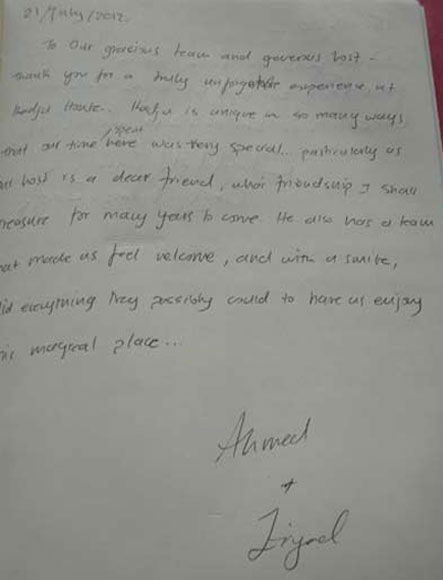 21/July/2012.
To Our gracious team and generous host -
thank you for a truly unforgettable experience, at
House.. is unique in so many ways
that our time spent here was very special.. particularly as
our host is a dear friend, who's friendship I shall
treasure for many years to come. He also has a team
that made us feel welcome, and with a smile,
did everything they possibly could to have us enjoy
this magical place...
Ahmed
+
Ziyad